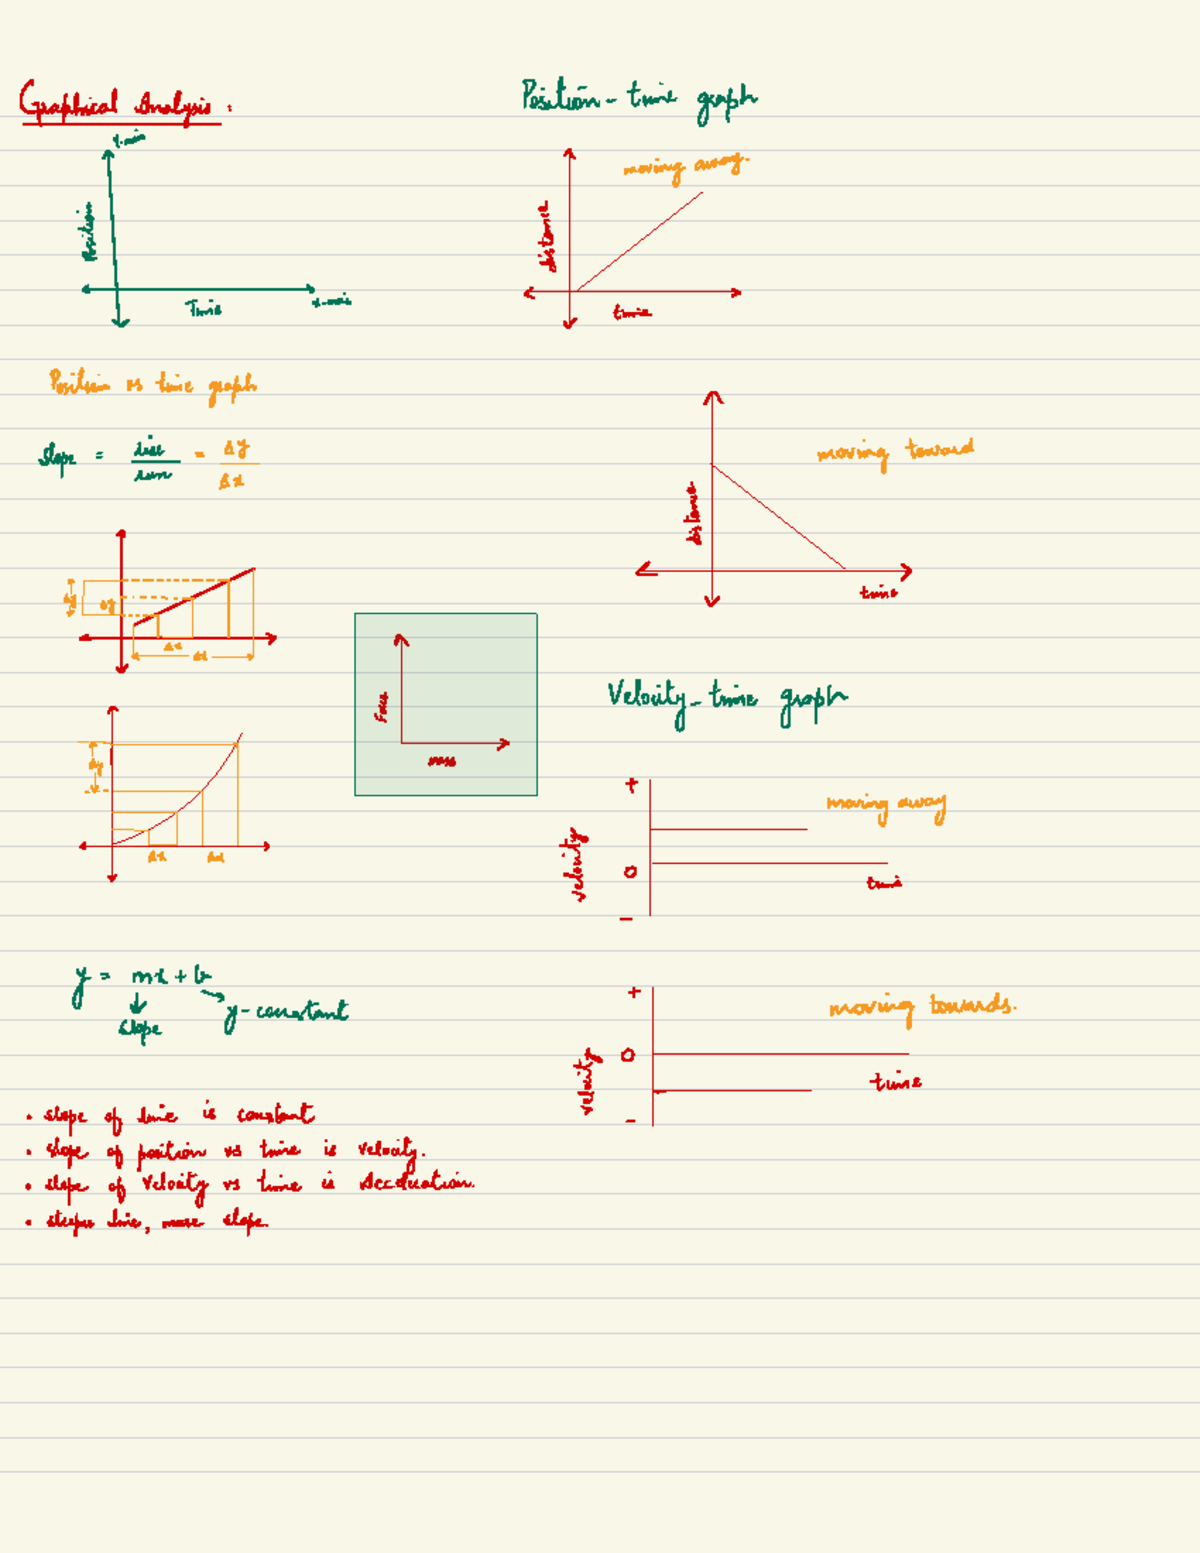 Graphical Analysis :
y-axis
Position
Time
x-axis
Position vs time graph
slope = rise/run = Δy/Δx
Δy
Δy
Δx
Δx
Δy
Δx
Δx
Force
mass
y = mx + b
slope
y-constant
• slope of line is constant
• slope of position vs time is velocity.
• slope of velocity vs time is Acceleration.
• steeper line, more slope.
Position-time graph
moving away.
distance
time
moving toward
distance
time
Velocity-time graph
+
moving away
velocity
0
time
-
+
moving towards.
0
velocity
time
-